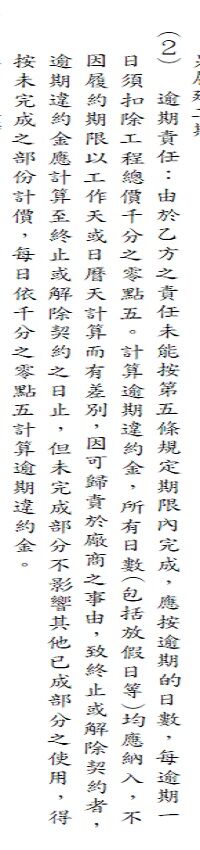 (2) 逾期責任：由於乙方之責任未能按第五條規定期限內完成，應按逾期的日數，每逾期一
日須扣除工程總價千分之零點五。計算逾期違約金，所有日數(包括放假日等)均應納入，不
因履約期限以工作天或日曆天計算而有差別，因可歸責於廠商之事由，致終止或解除契約者，
逾期違約金應計算至終止或解除契約之日止，但未完成部分不影響其他已成部分之使用，得
按未完成之部份計價，每日依千分之零點五計算逾期違約金。